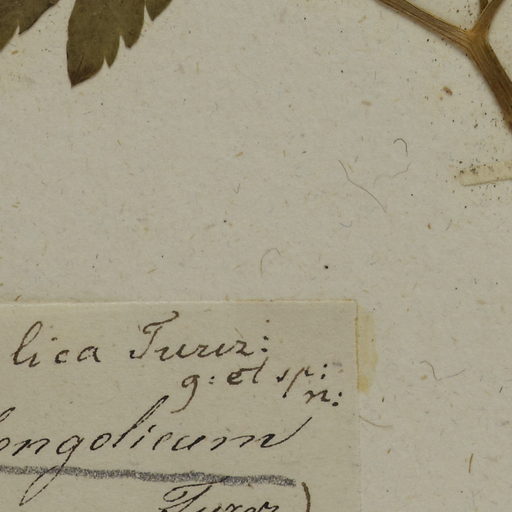 lica Turcz:
g: et sp:
n:
ongolicum
Turcz)